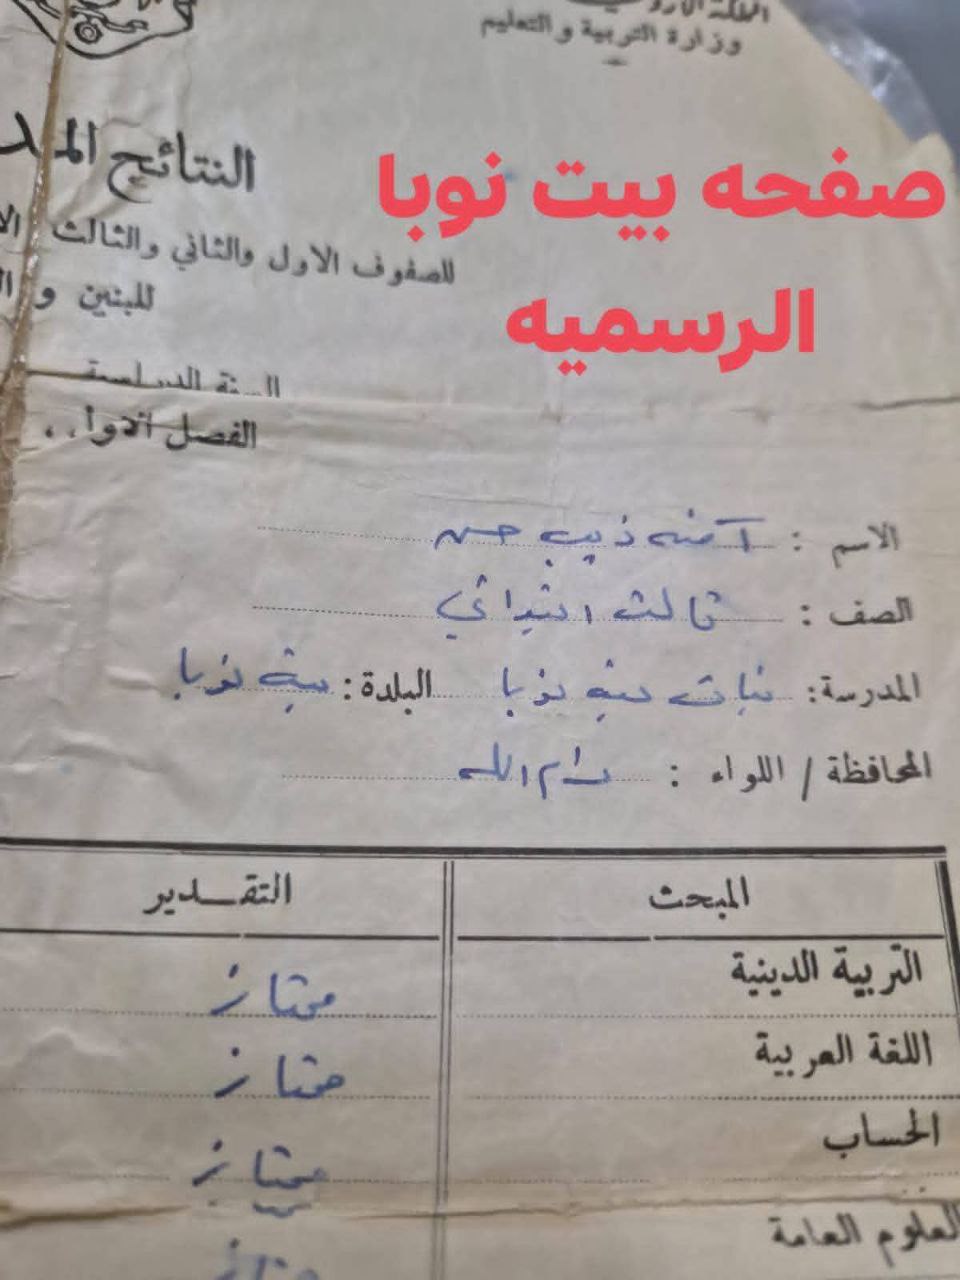 وزارة التربية والتعليم
النتائج
صفحه بيت نوبا
الرسميه
للصفوف الاول والثاني والثالث
للبنين و
السنة الدراسية
الفصل الاول
الاسم : آمنه ذيب حسن
الصف : ثالث ابتدائي
المدرسة: بنات بيت نوبا البلدة: بيت نوبا
المحافظة / اللواء : رام الله
المبحث التقـــدير
التربية الدينية ممتاز
اللغة العربية ممتاز
الحساب ممتاز
العلوم العامة ممتاز